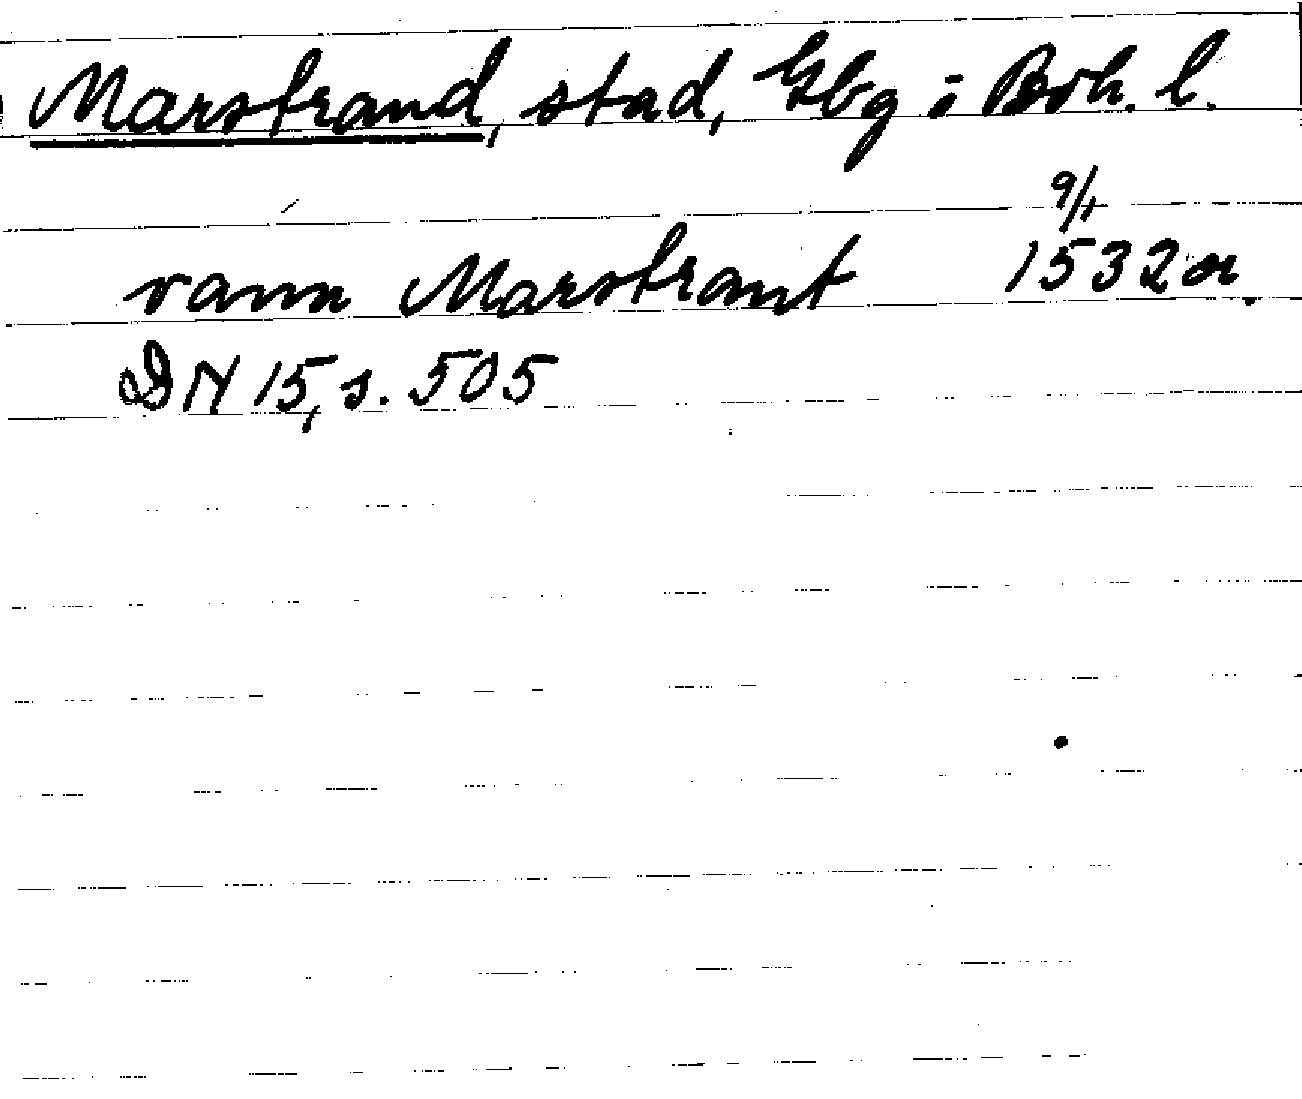 Marstrand, stad, Gbg o Boh. l.
9/1
vann Marstrant 1532 or.
DN 15, s. 505